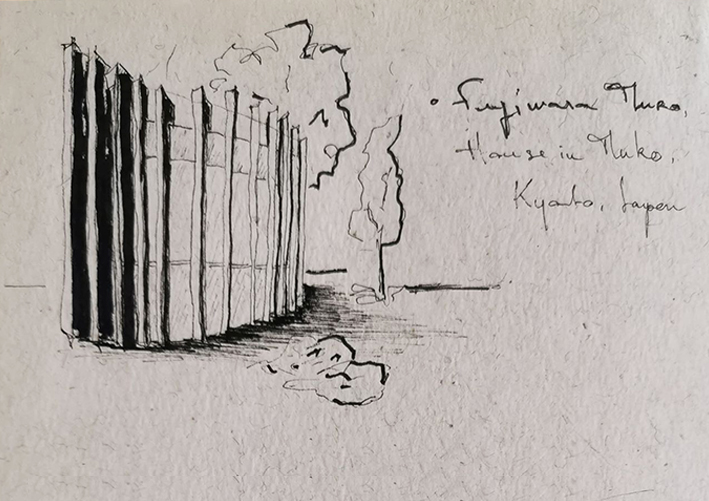 • Fujiwara Muro,
House in Muko,
Kyoto, Japan